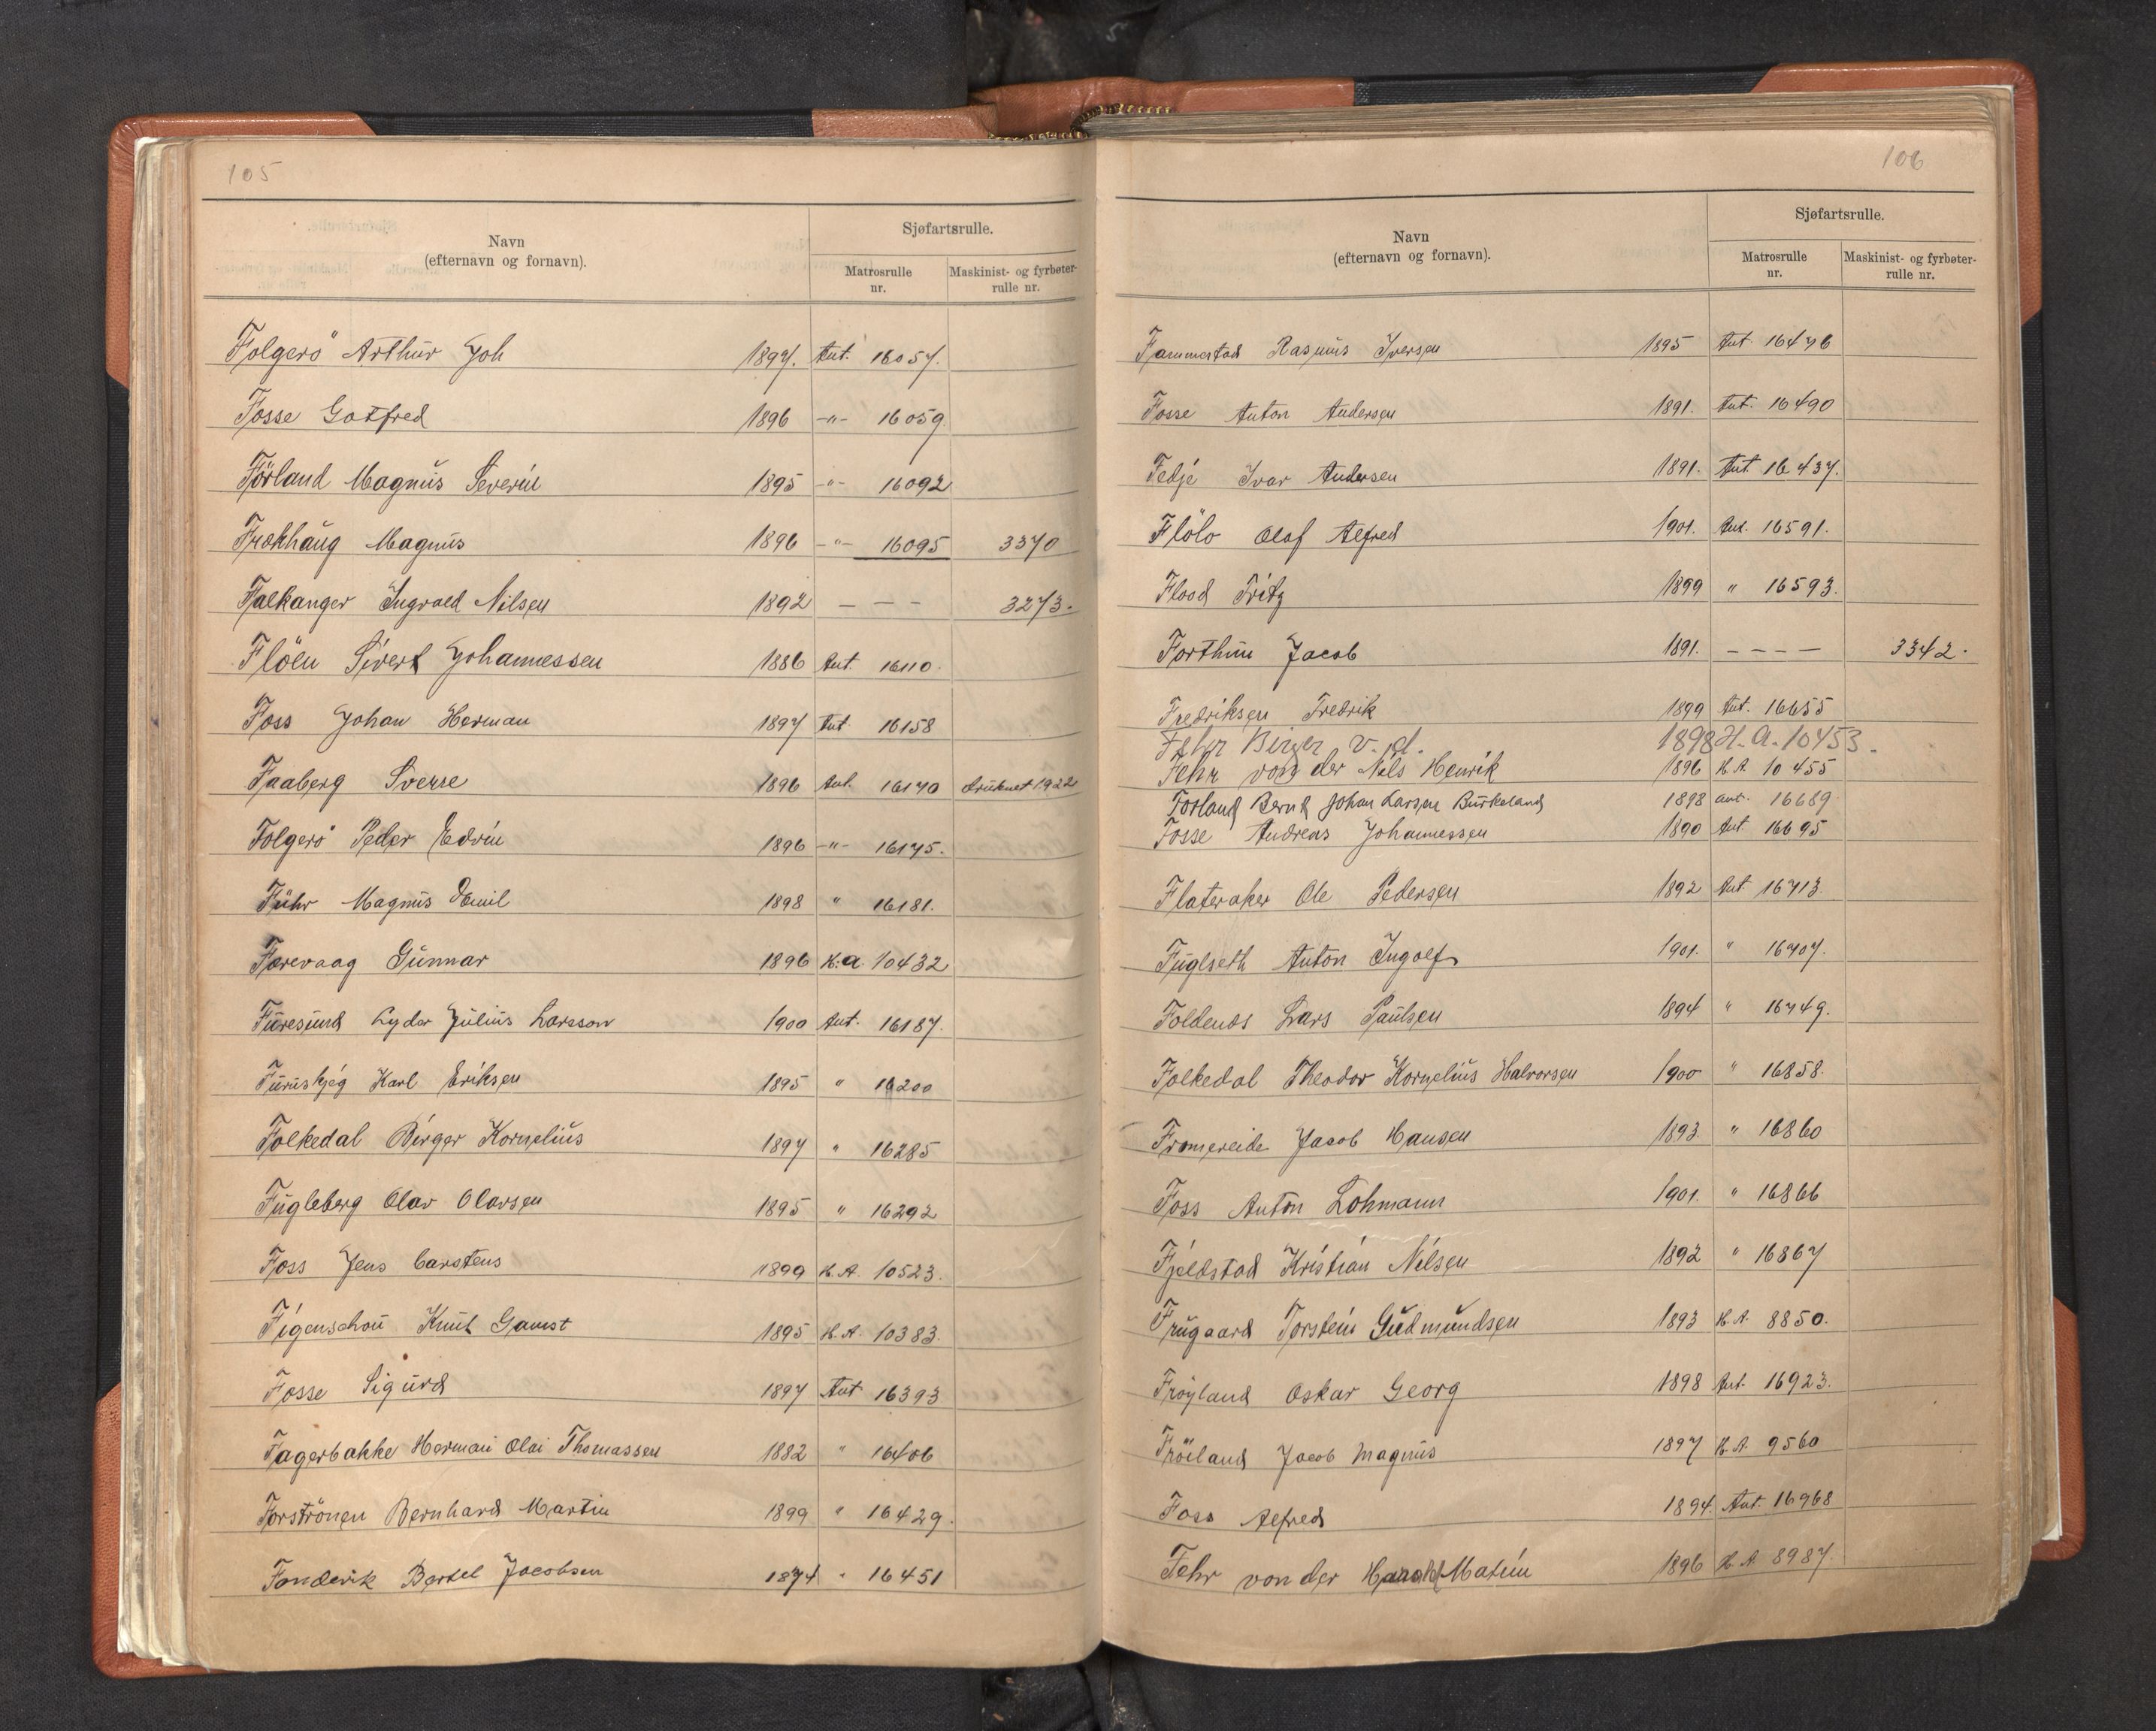 105
Navn
(efternavn og fornavn).
Sjøfartsrulle.
Matrosrulle
nr.
Maskinist- og fyrbøter-
rulle nr.
Folgerö Arthur Joh 1897. Ant. 16057.
Fosse Gotfred 1896 -"- 16059
Förland Magnus Severin 1895 -"- 16092
Frækhaug Magnus 1896 -"- 16095 3370
Falkanger Ingvald Nilsen 1892 - - - 3273.
Flöen Sivert Johannessen 1886 Ant. 16110.
Foss Johan Herman 1897 Ant 16158
Faaberg Sverre 1896 Ant. 16170 druknet 1922
Folgerö Peder Edvin 1896 -"- 16175.
Führ Magnus Emil 1898 " 16181.
Færevaag Gunnar 1896 K.a. 10432
Furesund Lyder Julius Larsson 1900 Ant. 16187.
Furuskjeg Karl Eriksen 1895 " 16200
Folkedal Birger Kornelius 1897 " 16285
Fugleberg Olav Olavsen 1895 " 16292
Foss Jens Carstens 1899 K.A. 10523.
Figenschou Knut Gamst 1895 K.A. 10383.
Fosse Sigurd 1897 Ant 16393
Fagerbakke Herman Olai Thomassen 1882 " 16406
Forströnen Bernhard Martin 1899 " 16429.
Fonderik Bertel Jacobsen 1874 " 16451
106
Navn
(efternavn og fornavn).
Sjøfartsrulle.
Matrosrulle
nr.
Maskinist- og fyrbøter-
rulle nr.
Fammestad Rasmus Iversen 1895 Ant. 16476
Fosse Anton Andersen 1891. Ant. 16490
Fedje Ivar Andersen 1891. Ant 16437.
Flölo Olaf Alfred 1901. Ant. 16591.
Flood Fritz 1899 " 16593.
Forthun Jacob 1891. - - - - 3342.
Fredriksen Fredrik 1899 Ant. 16655
Fehr Birger v. d. 1898 H.A. 10453.
Fehr von der Nils Henrik 1896 K.A. 10455
Forland Bernt Johan Larsen Birkeland 1898 ant. 16689
Fosse Andreas Johannessen 1890 Ant 16695
Flateraker Ole Pedersen 1892 Ant 16713.
Fuglseth Anton Ingolf 1901. " 16707.
Foldenes Lars Paulsen 1894 " 16749.
Folkedal Theodor Kornelius Halvorsen 1900 " 16858.
Fromereide Jacob Hansen 1893. " 16860
Foss Anton Lohmann 1901. " 16866
Fjeldstad Kristian Nilsen 1892 " 16867
Frugaard Torstein Gudmundsen 1893 K.A. 8850.
Fröyland Oskar Georg 1898 Ant. 16923.
Fröiland Jacob Magnus 1897 K.A. 9560
Foss Alfred 1894. Ant. 16968
Fehr von der Harald Matin 1896 K.A. 8987.